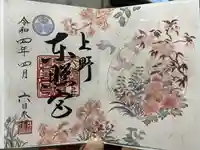 上野
東照宮
令和四年四月六日参拝